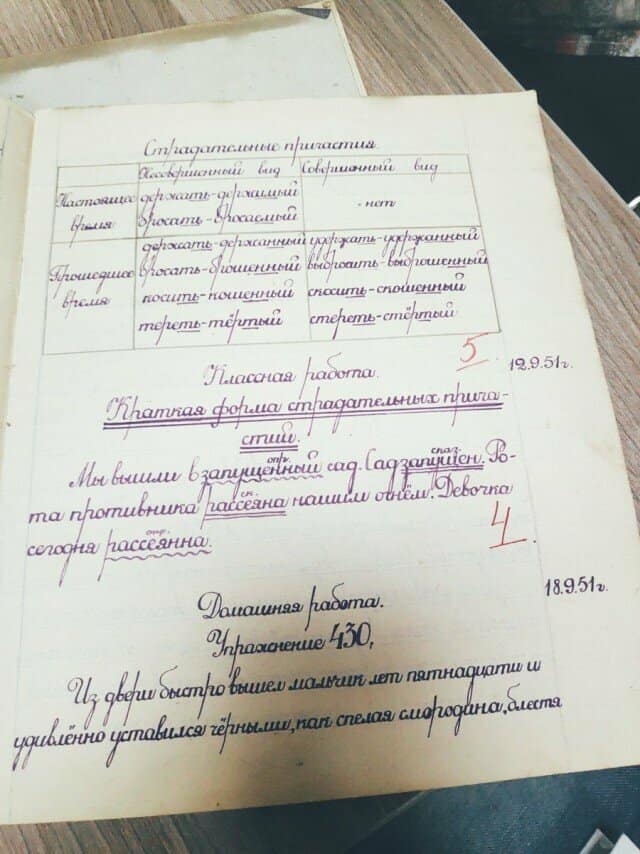 Страдательные причастия.
Несовершенный вид Совершенный вид
Настоящее время держать-держимый - нет
бросать-бросаемый
Прошедшее время держать-держанный удержать-удержанный
бросать-брошенный выбросить-выброшенный
косить-кошенный скосить-скошенный
тереть-тёртый стереть-стёртый
5
Классная работа. 12.9.51г.
Краткая форма страдательных прича-
стий.
опр. сказ.
Мы вышли в запущенный сад. Сад запущен. Ро-
ск.
та противника рассеяна нашим огнём. Девочка
опр.
сегодня рассеянна.
4
18.9.51г.
Домашняя работа.
Упражнение 430,
Из двери быстро вышел мальчик лет пятнадцати и
удивлённо уставился чёрными, как спелая смородина, блестя